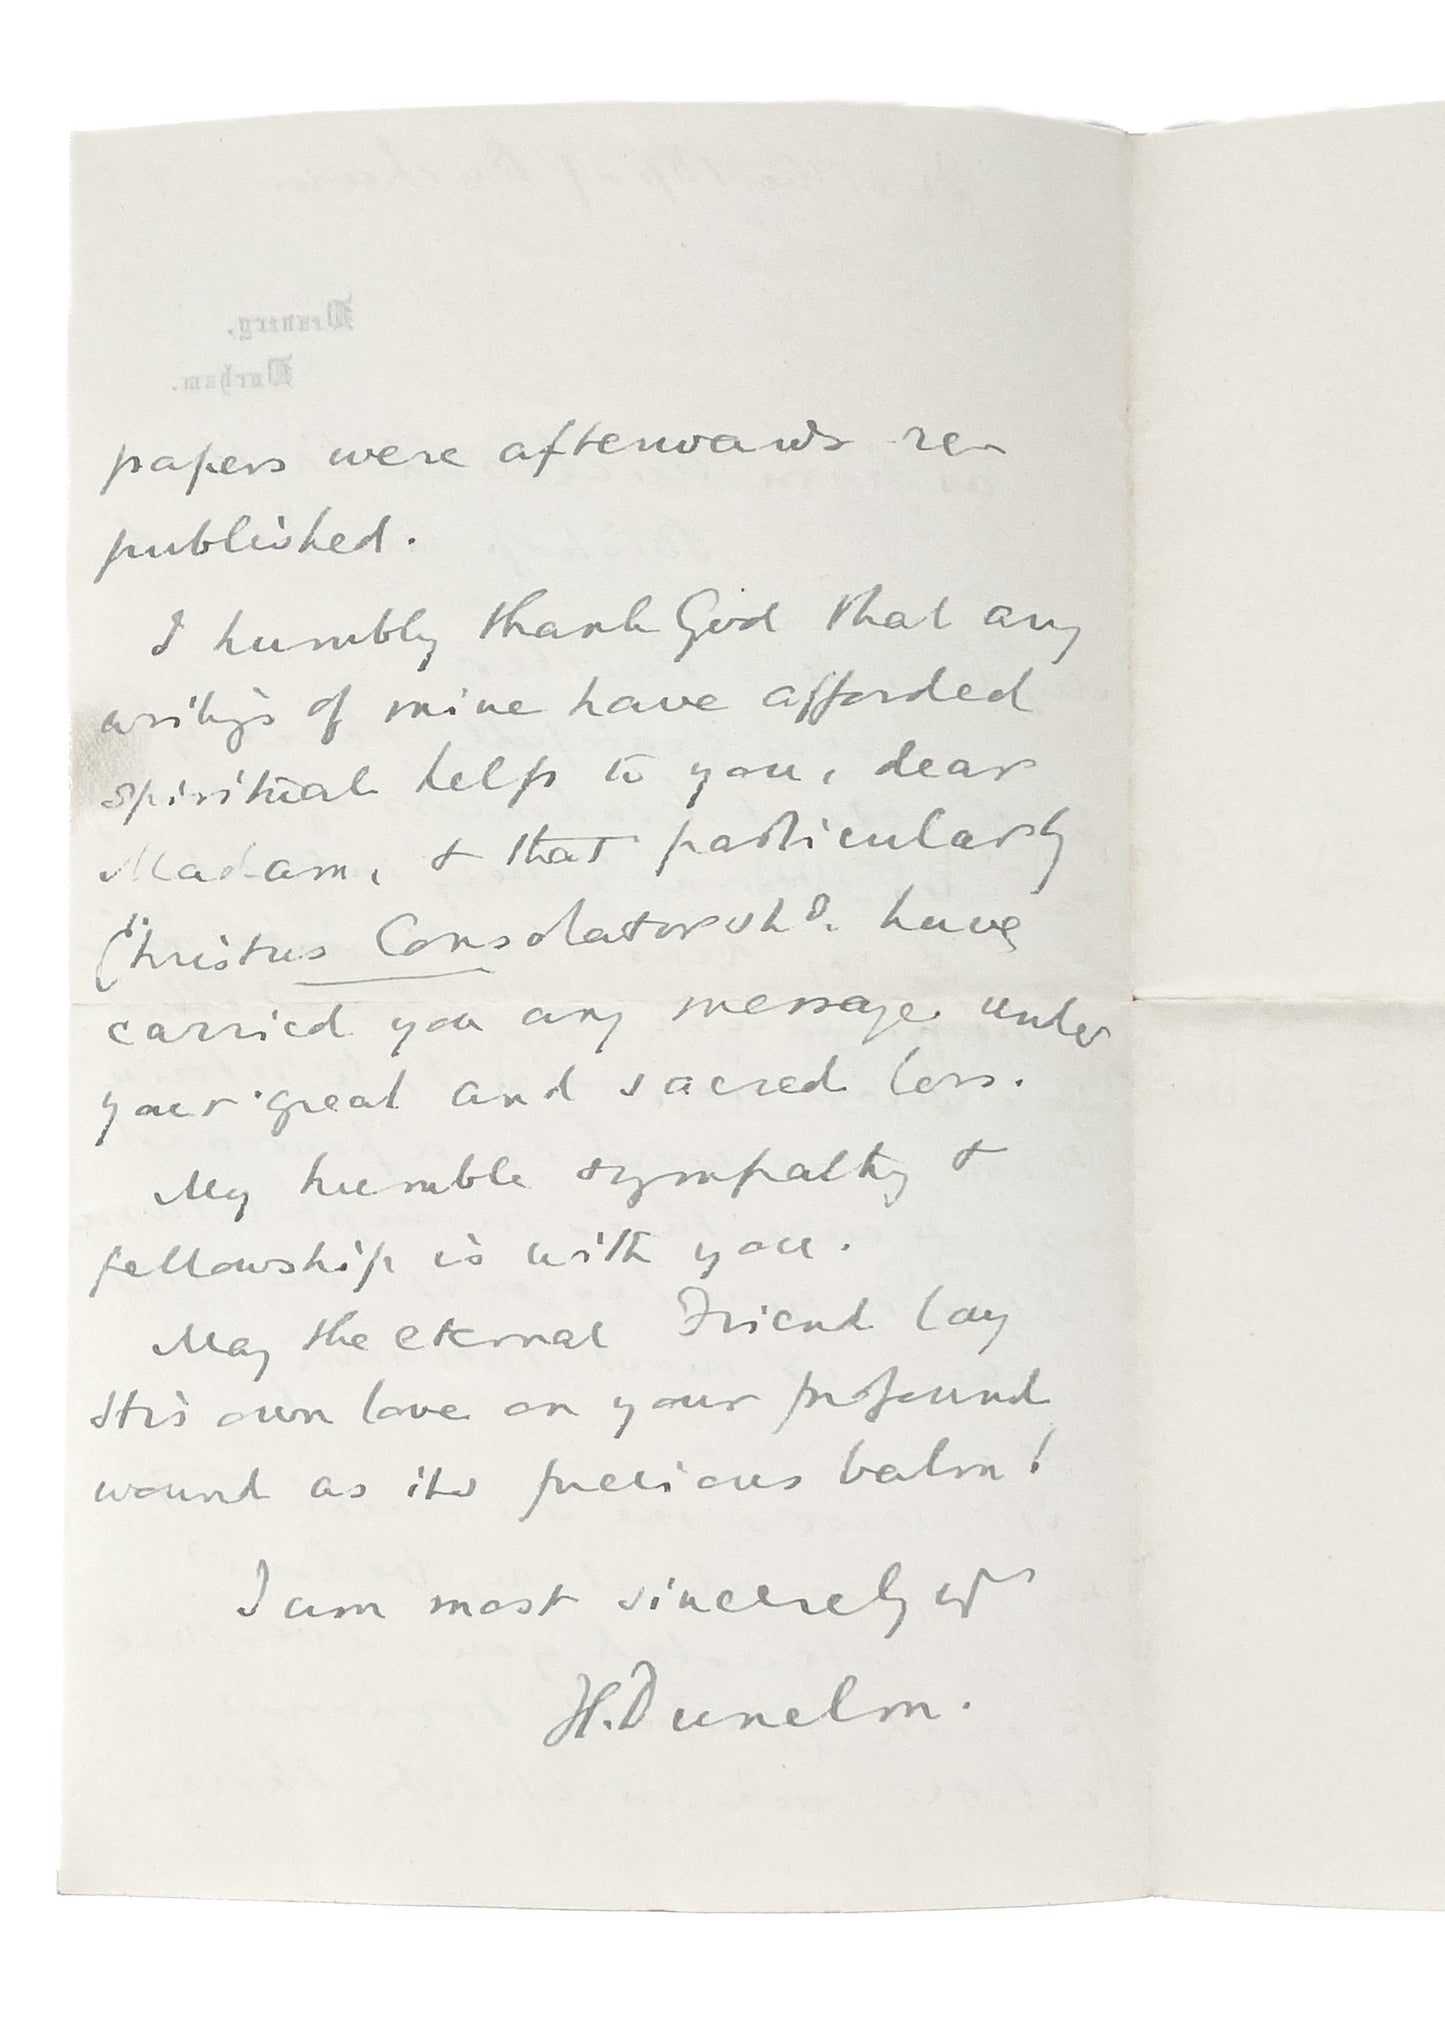 Deanery,
Durham.
papers were afterwards re-
published.
I humbly thank God that any
writings of mine have afforded
spiritual help to you, dear
Madam, & that particularly
Christus Consolator shd. have
carried you any message under
your great and sacred loss.
My humble sympathy &
fellowship is with you.
May the eternal Friend lay
His own love on your profound
wound as its precious balm!
I am most sincerely yrs
H. Dunelm.